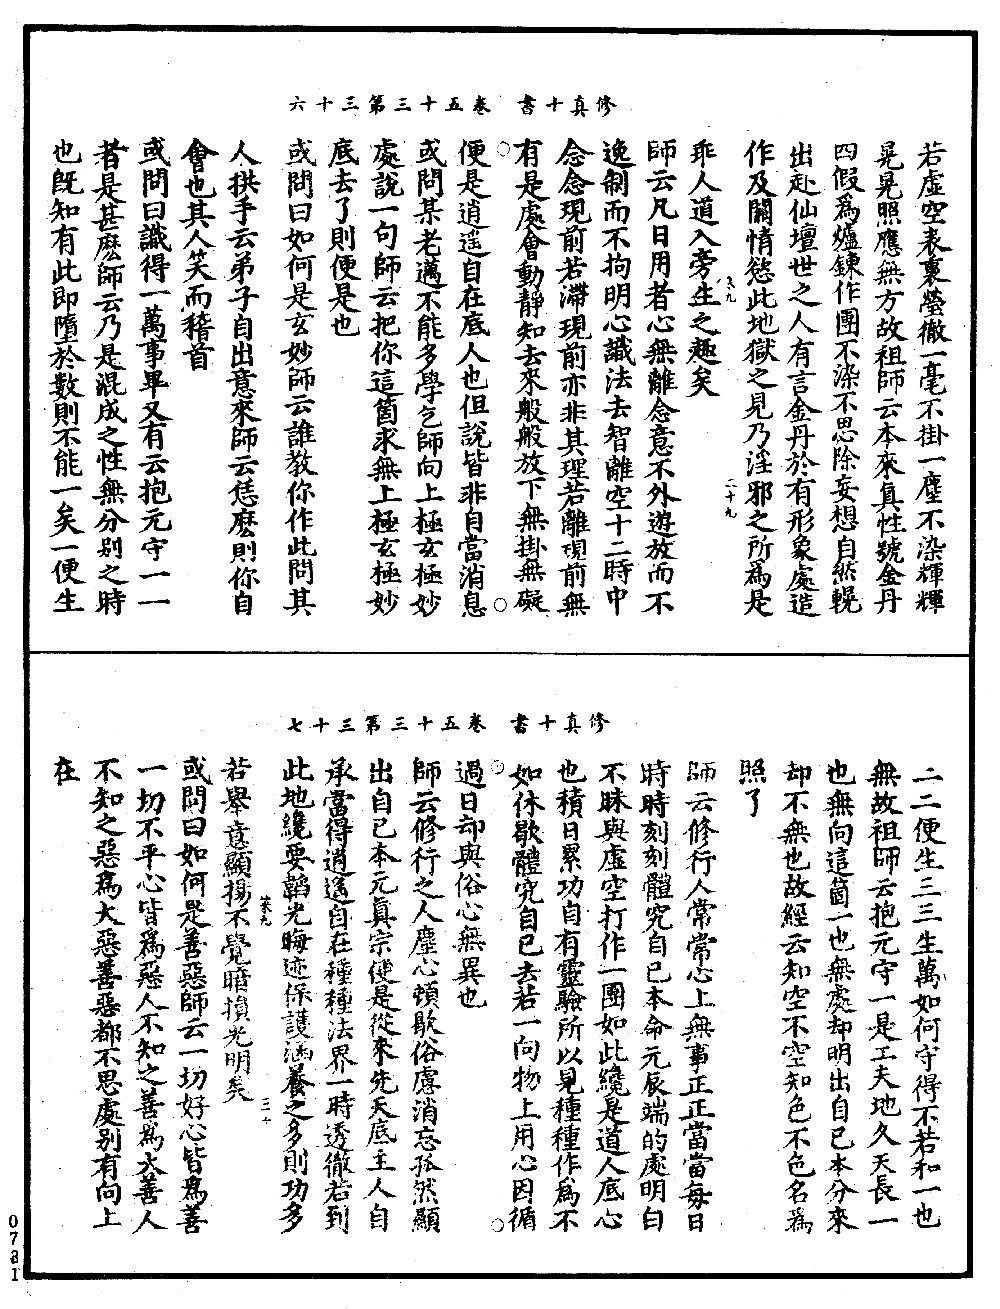 修真十書　卷五十三第三十六
若虛空表裏瑩徹一毫不掛一塵不染輝輝
晃晃照應無方故祖師云本來真性號金丹
四假為爐鍊作團不染不思除妄想自然輥
出赴仙壇世之人有言金丹於有形象處造
作及關情慾此地獄之見乃淫邪之所為是
二十九
乖人道入旁生之趣矣
師云凡日用者心無離念意不外遊放而不
逸制而不拘明心識法去智離空十二時中
念念現前若滯現前亦非其理若離現前無
有是處會動靜知去來般般放下無掛無礙
便是逍遥自在底人也但說皆非自當消息
或問某老邁不能多學乞師向上極玄極妙
處說一句師云把你這箇求無上極玄極妙
底去了則便是也
或問曰如何是玄妙師云誰教你作此問其
人拱手云弟子自出意來師云恁麽則你自
會也其人笑而稽首
或問曰識得一萬事畢又有云抱元守一一
者是甚麽師云乃是混成之性無分別之時
也旣知有此即墮於數則不能一矣一便生
修真十書　卷五十三第三十七
二二便生三三生萬如何守得不若和一也
無故祖師云抱元守一是工夫地久天長一
也無向這箇一也無處却明出自已本分來
却不無也故經云知空不空知色不色名為
照了
師云修行人常常心上無事正正當當每日
時時刻刻體究自已本命元辰端的處明白
不昧與虛空打作一團如此纔是道人底心
也積日累功自有靈驗所以見種種作為不
如休歇體究自已去若一向物上用心因循
過日却與俗心無異也
師云修行之人塵心頓歇俗慮消忘孤然顯
出自已本元真宗便是從來先天底主人自
承當得逍遥自在種種法界一時透徹若到
此地纔要韜光晦迹保護涵養之多則功多
三十
若舉意顯揚不覺暗損光明矣
或問曰如何是善惡師云一切好心皆為善
一切不平心皆為惡人不知之善為大善人
不知之惡為大惡善惡都不思處别有向上
在